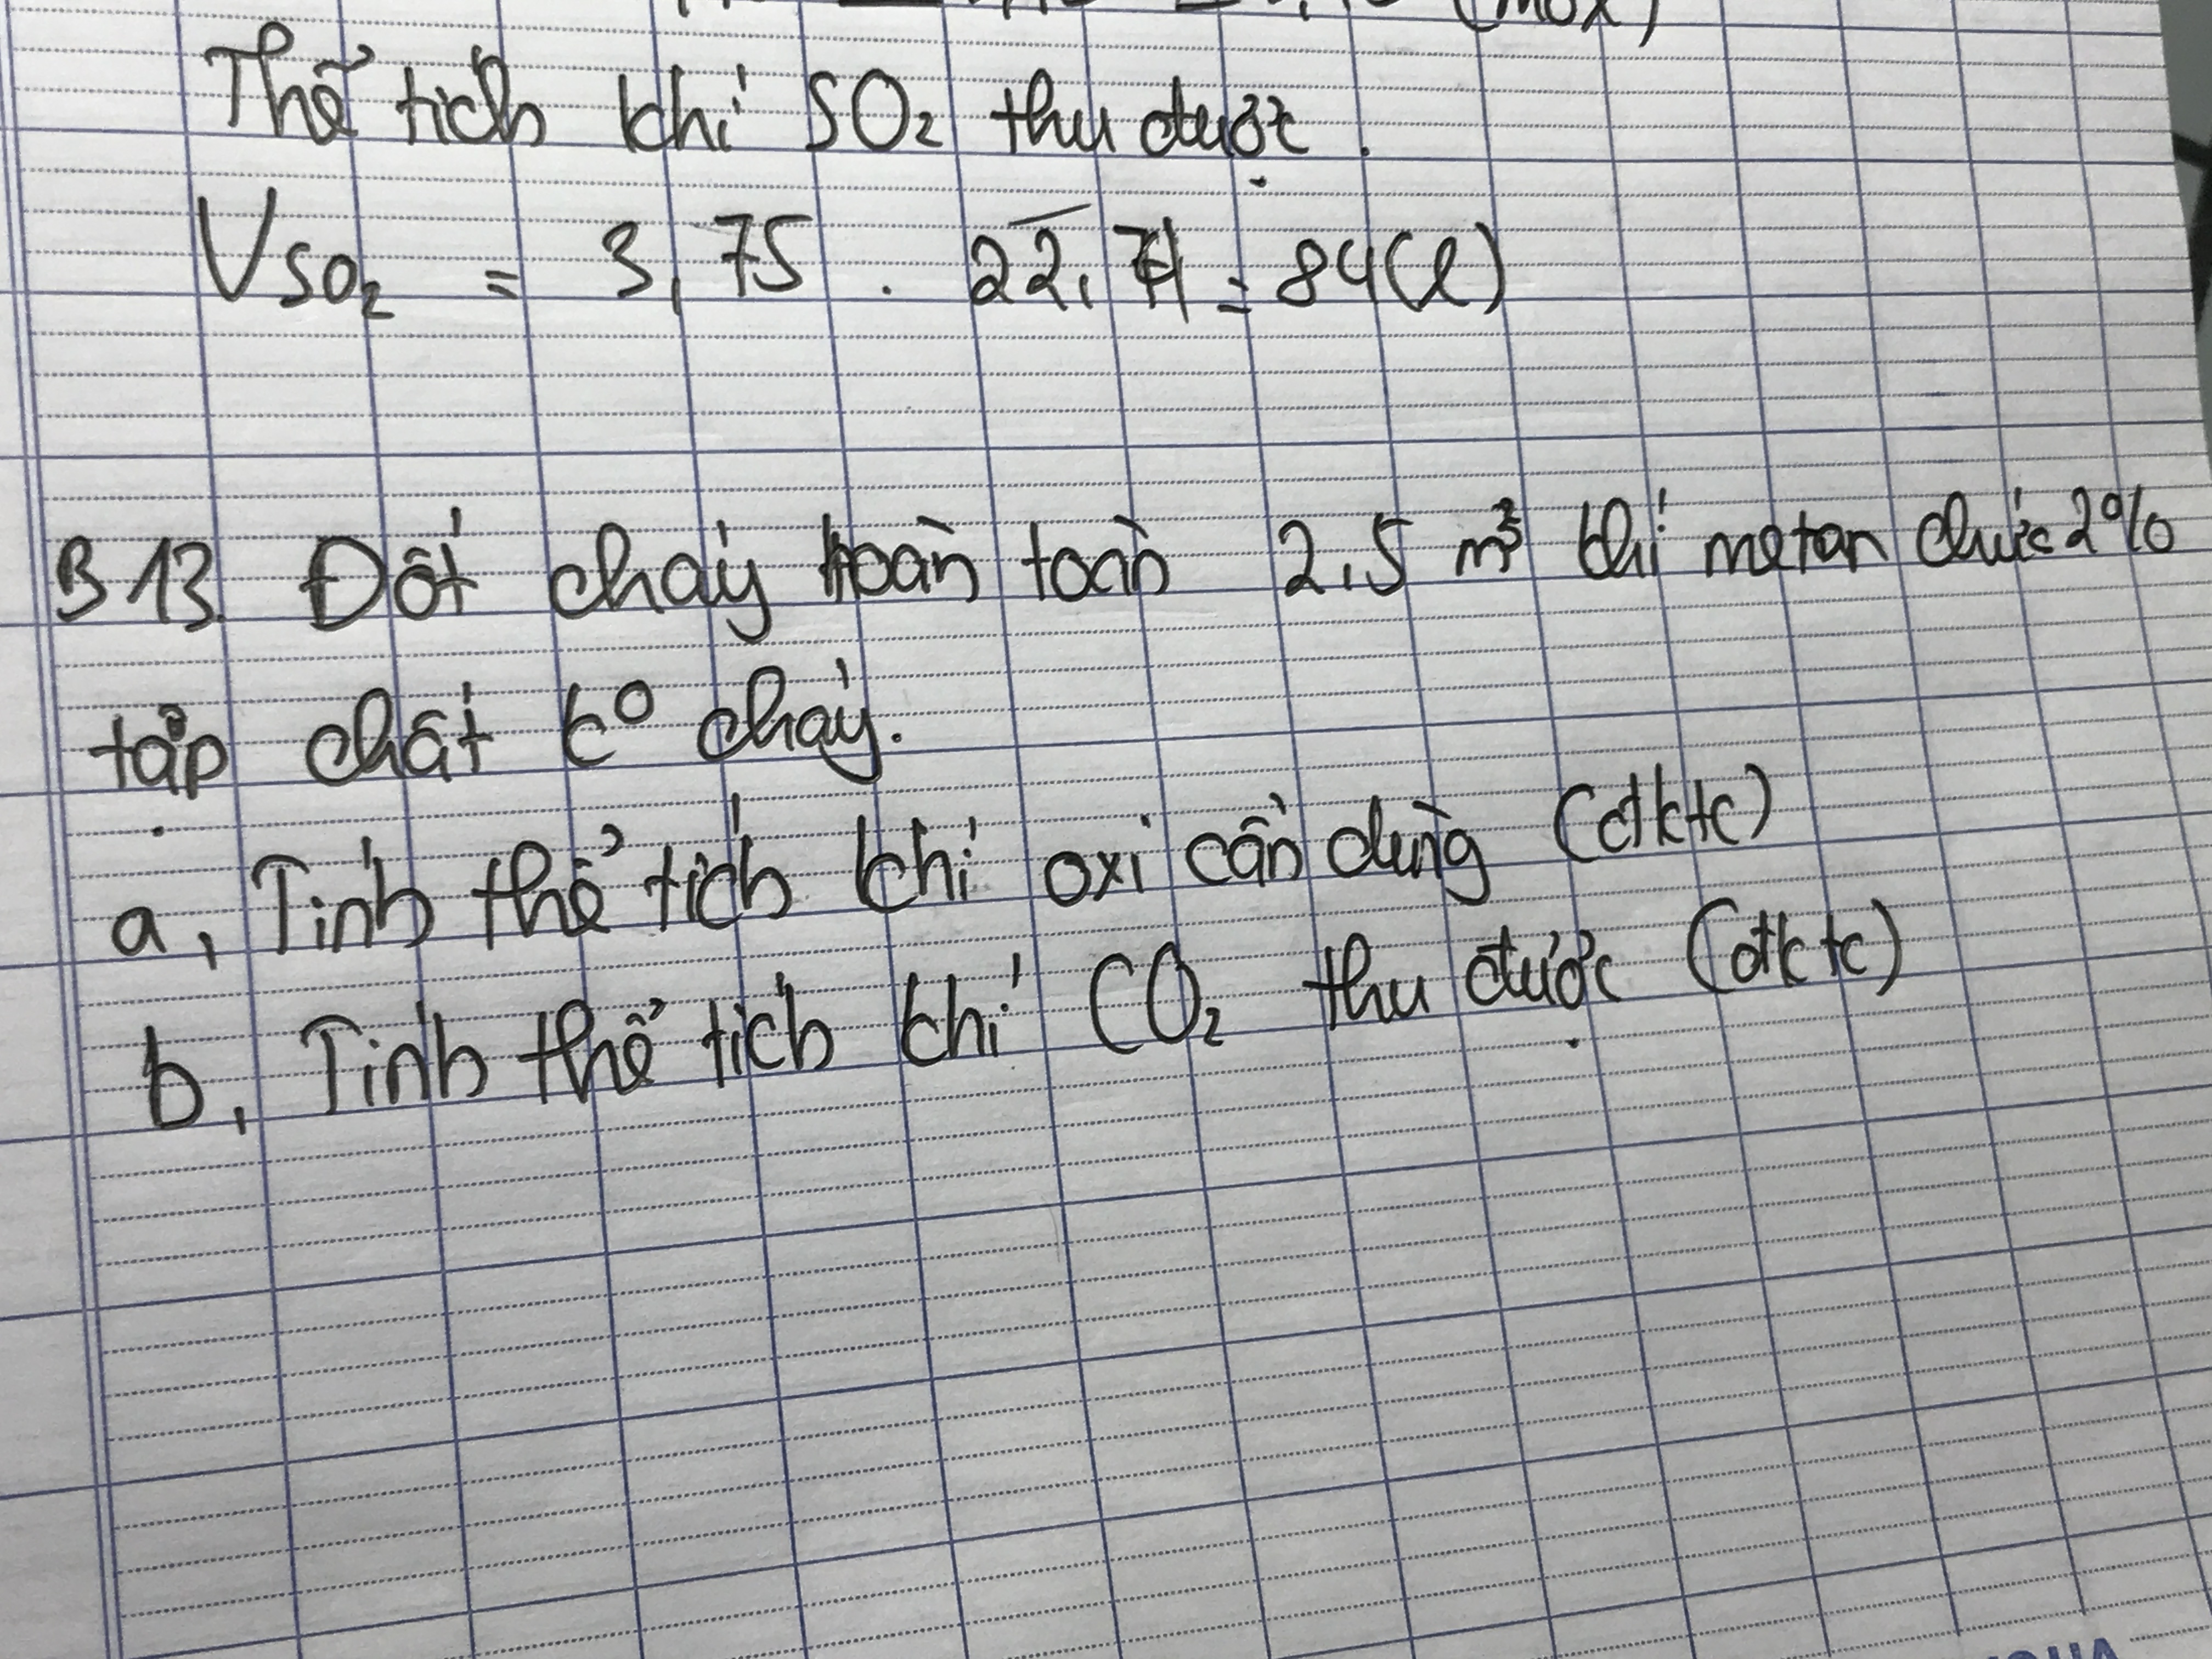 (mol)
Thể tích khí SO₂ thu được.
V SO₂ = 3,75 . 22,4 = 84(l)
B13. Đốt cháy hoàn toàn 2,5 m³ khí metan chứa 2%
tạp chất k° cháy.
a, Tính thể tích khí oxi cần dùng (đktc)
b, Tính thể tích khí CO₂ thu được (đktc)